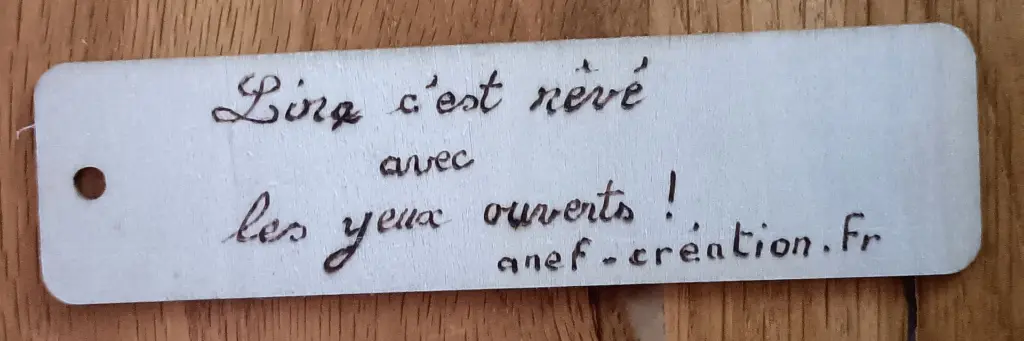 Lire c'est rêvé
avec
les yeux ouverts !
anef-création.Fr